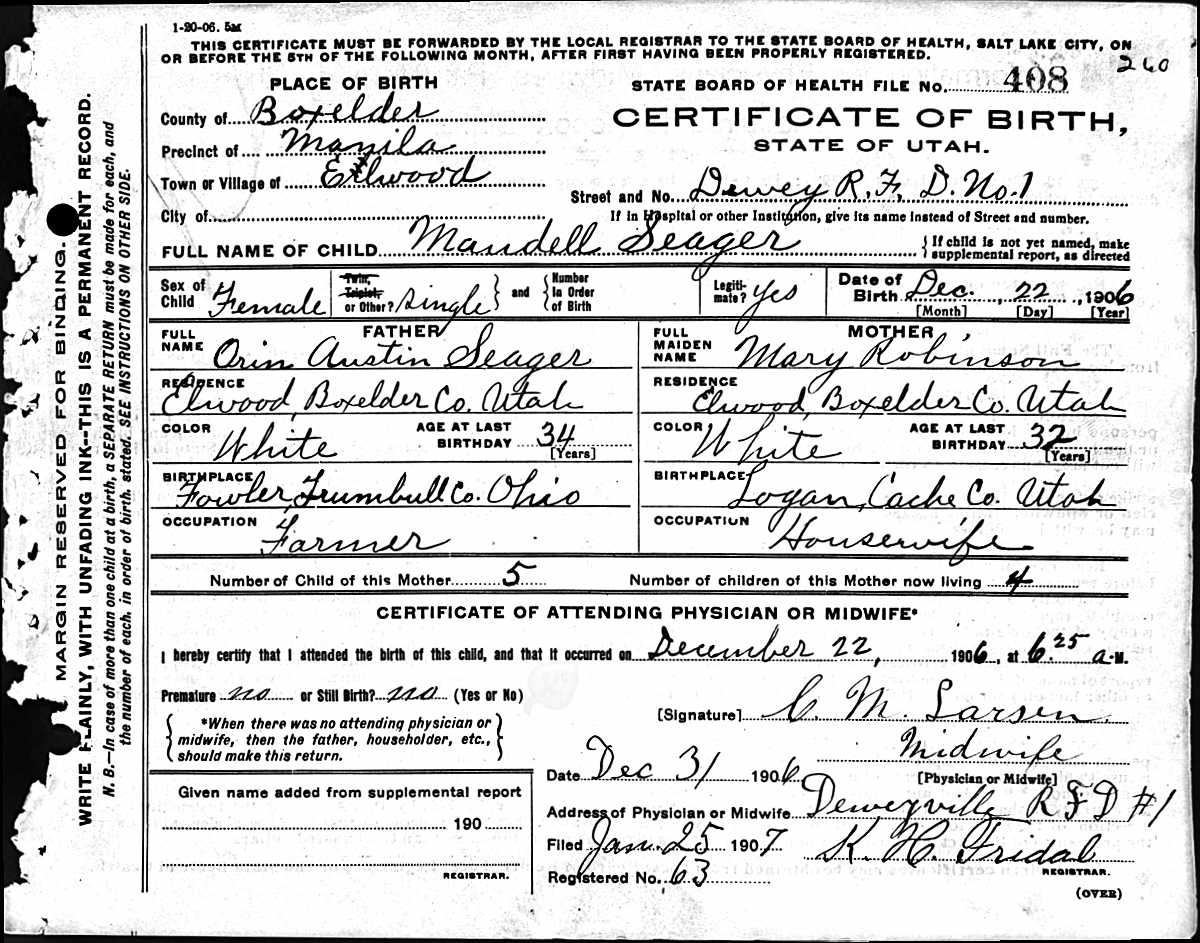 1-20-06. 5M
THIS CERTIFICATE MUST BE FORWARDED BY THE LOCAL REGISTRAR TO THE STATE BOARD OF HEALTH, SALT LAKE CITY, ON
OR BEFORE THE 5TH OF THE FOLLOWING MONTH, AFTER FIRST HAVING BEEN PROPERLY REGISTERED.
260
PLACE OF BIRTH
STATE BOARD OF HEALTH FILE No. 408
County of Boxelder
CERTIFICATE OF BIRTH,
Precinct of Manila
STATE OF UTAH.
Town or Village of Elwood
Street and No. Dewey R.F.D. No.1
City of
If in Hospital or other Institution, give its name instead of Street and number.
FULL NAME OF CHILD Mandell Seager
{ If child is not yet named, make
supplemental report, as directed
Sex of Child Female
Twin, Triplet, or Other? single } and { Number in Order of Birth
Legiti-mate? yes
Date of Birth Dec. 22, 1906
[Month] [Day] [Year]
FATHER
FULL NAME Orin Austin Seager
RESIDENCE
Elwood, Boxelder Co. Utah
COLOR White AGE AT LAST BIRTHDAY 34
[Years]
BIRTHPLACE
Fowler, Trumbull Co. Ohio
OCCUPATION
Farmer
MOTHER
FULL MAIDEN NAME Mary Robinson
RESIDENCE
Elwood, Boxelder Co. Utah
COLOR White AGE AT LAST BIRTHDAY 32
[Years]
BIRTHPLACE
Logan, Cache Co. Utah
OCCUPATION
Housewife
Number of Child of this Mother 5 Number of children of this Mother now living 4
CERTIFICATE OF ATTENDING PHYSICIAN OR MIDWIFE*
I hereby certify that I attended the birth of this child, and that it occurred on December 22, 1906, at 6.25 a.M.
Premature no or Still Birth? no (Yes or No)
{ *When there was no attending physician or
midwife, then the father, householder, etc.,
should make this return. }
[Signature] C. M. Larsen
Midwife
Date Dec 31 1906 [Physician or Midwife]
Given name added from supplemental report
190
REGISTRAR.
Address of Physician or Midwife Deweyville RFD #1
Filed Jan. 25 1907 K. H. Fridal
REGISTRAR.
Registered No. 63
(OVER)
MARGIN RESERVED FOR BINDING.
WRITE PLAINLY, WITH UNFADING INK--THIS IS A PERMANENT RECORD.
N. B.—In case of more than one child at a birth, a SEPARATE RETURN must be made for each, and
the number of each, in order of birth, stated. SEE INSTRUCTIONS ON OTHER SIDE.